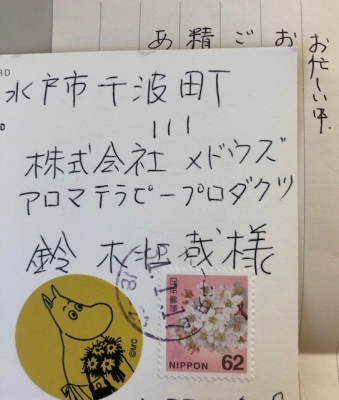 水戸市千波町
111
株式会社 メドウズ
アロマテラピープロダクツ
鈴木哲様
日本郵便
NIPPON 62
©MC
RD
お忙しい中、
お
ご
精
あ